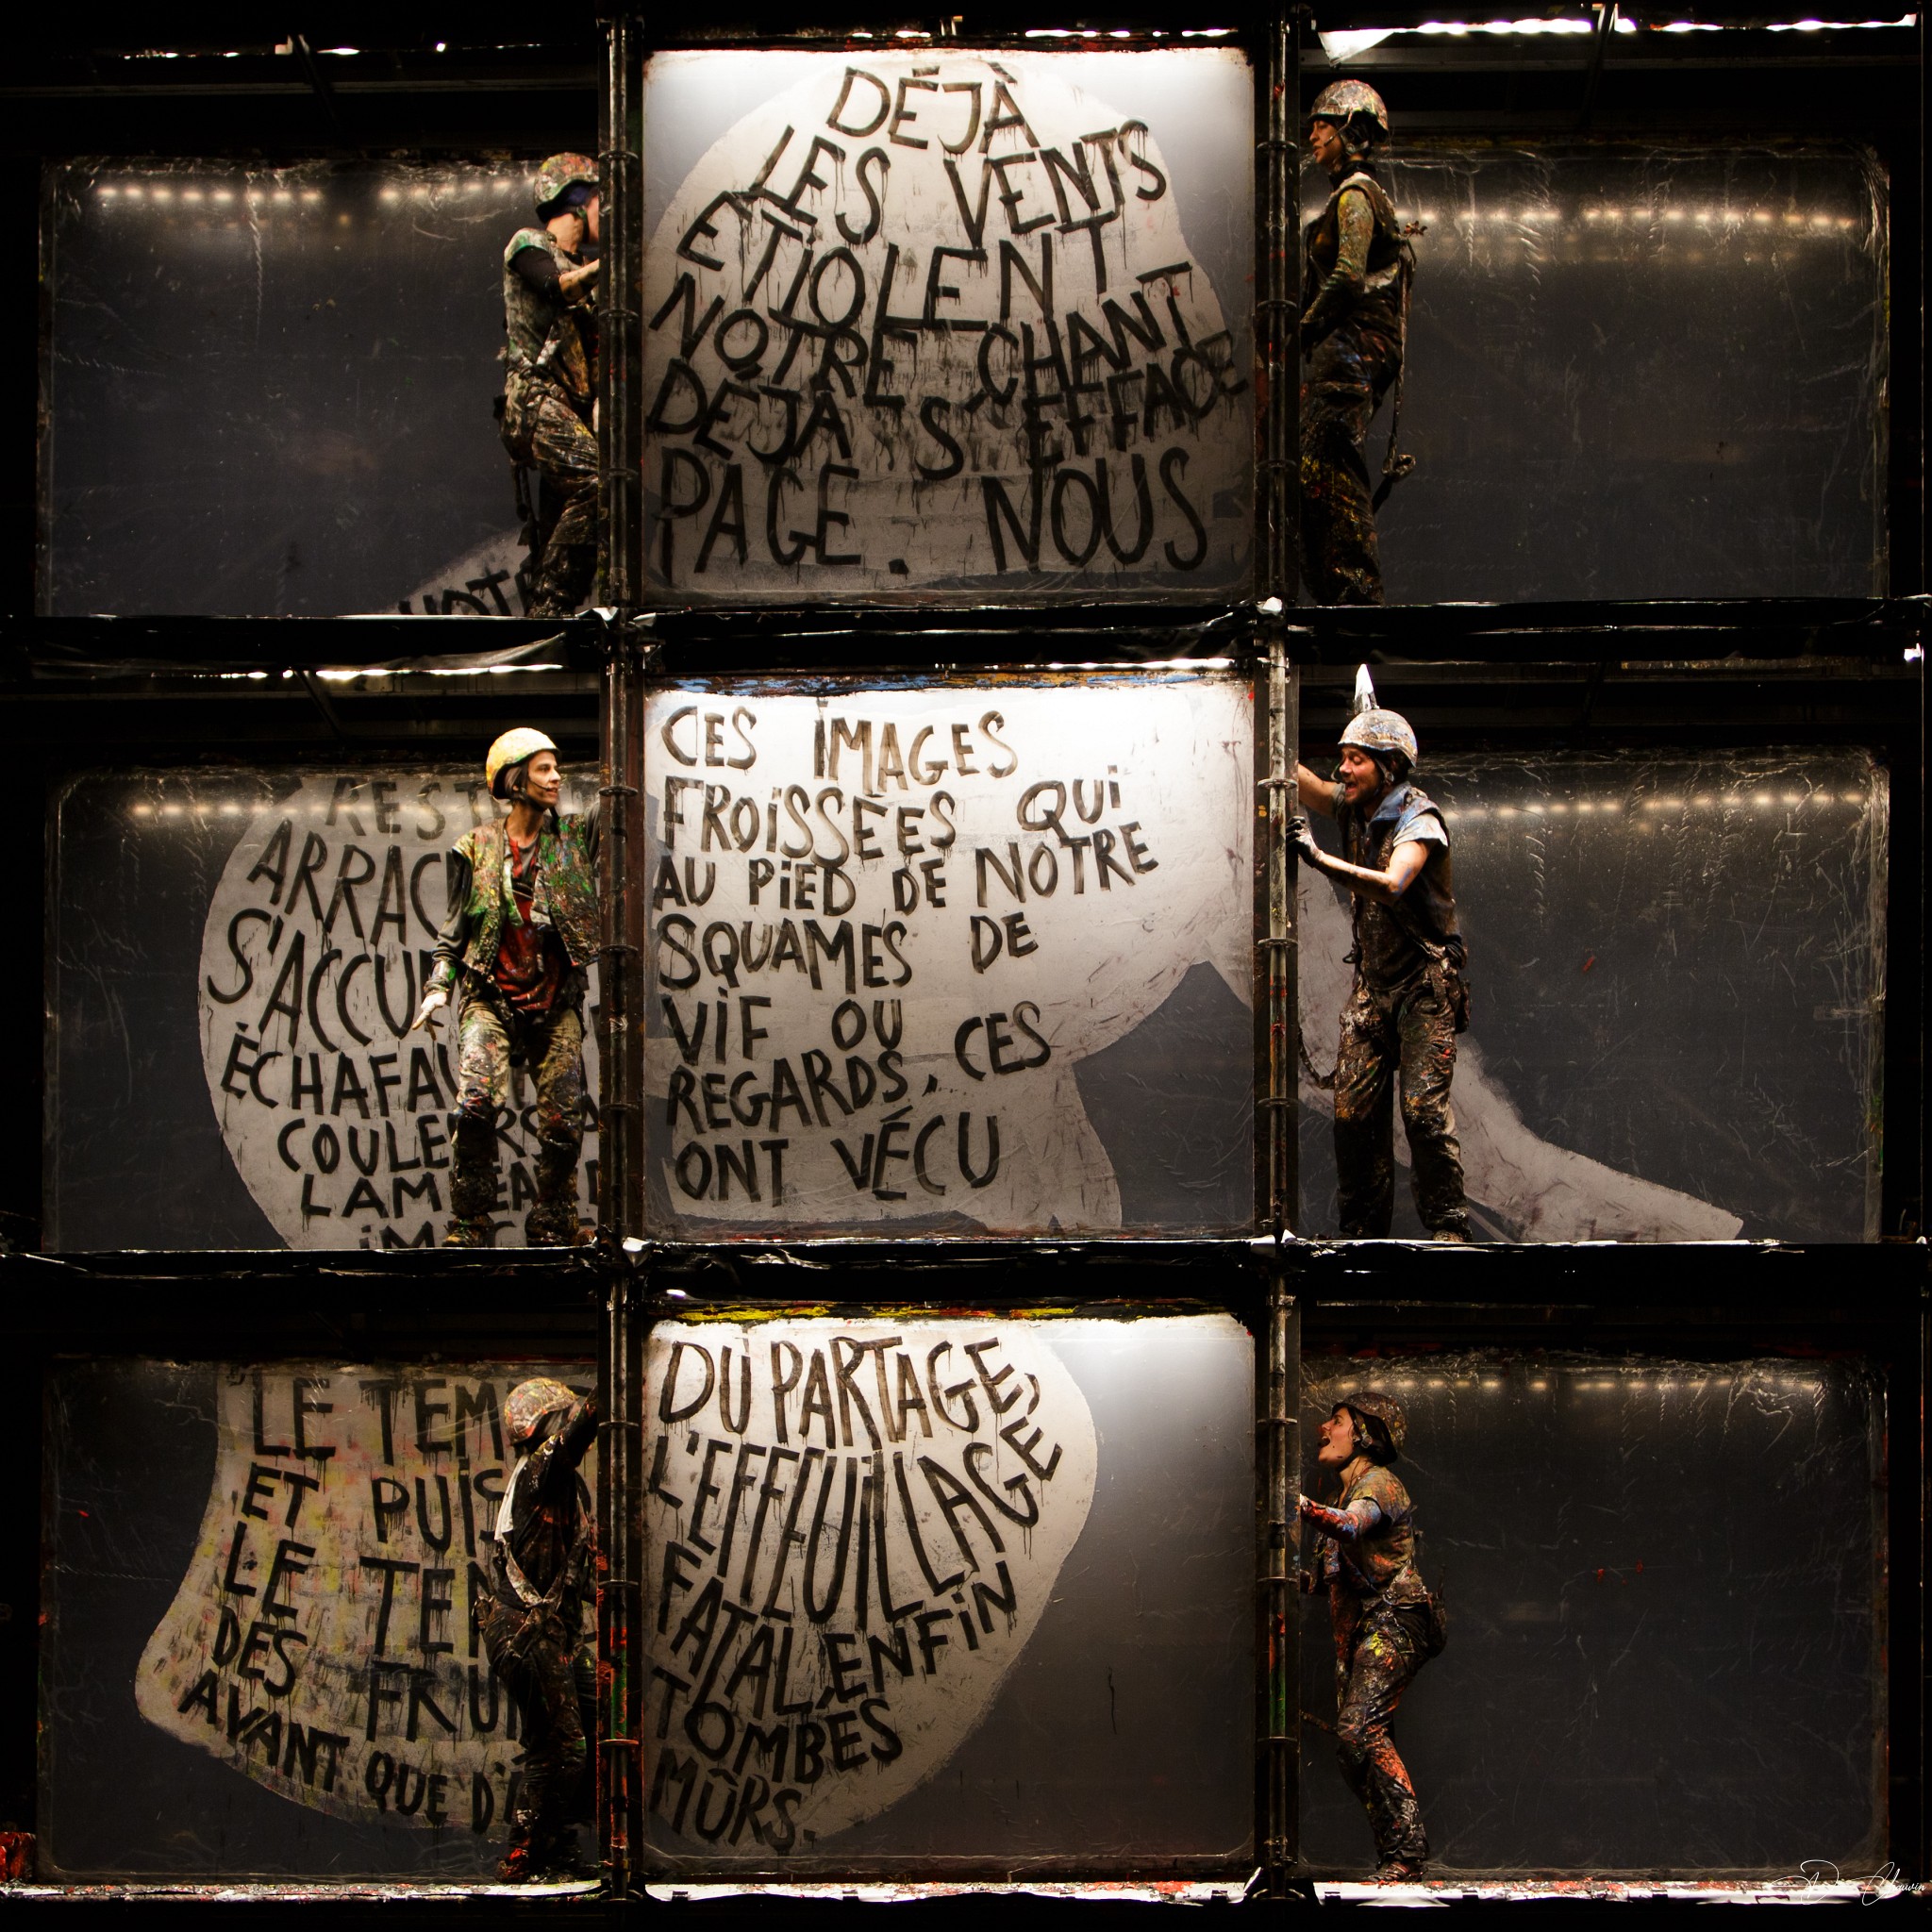 DÉJÀ
LES VENTS
ETiOLENT
NOTRE CHANT
DÉJÀ S'EFFACE
PAGE. NOUS
ARRAC
S'ACCU
ÉCHAFAU
COULEURS
LAMBEAU
CES IMAGES
FROiSSEES QUi
AU PiED DE NOTRE
SQUAMES DE
ViF OU
REGARDS, CES
ONT VÉCU
LE TEM
ET PUiS
LE TEM
DES FRUi
AVANT QUE D'
DU PARTAGE,
L'EFFEUiLLAGE
FATAL, ENFiN
TOMBÉS
MÛRS.